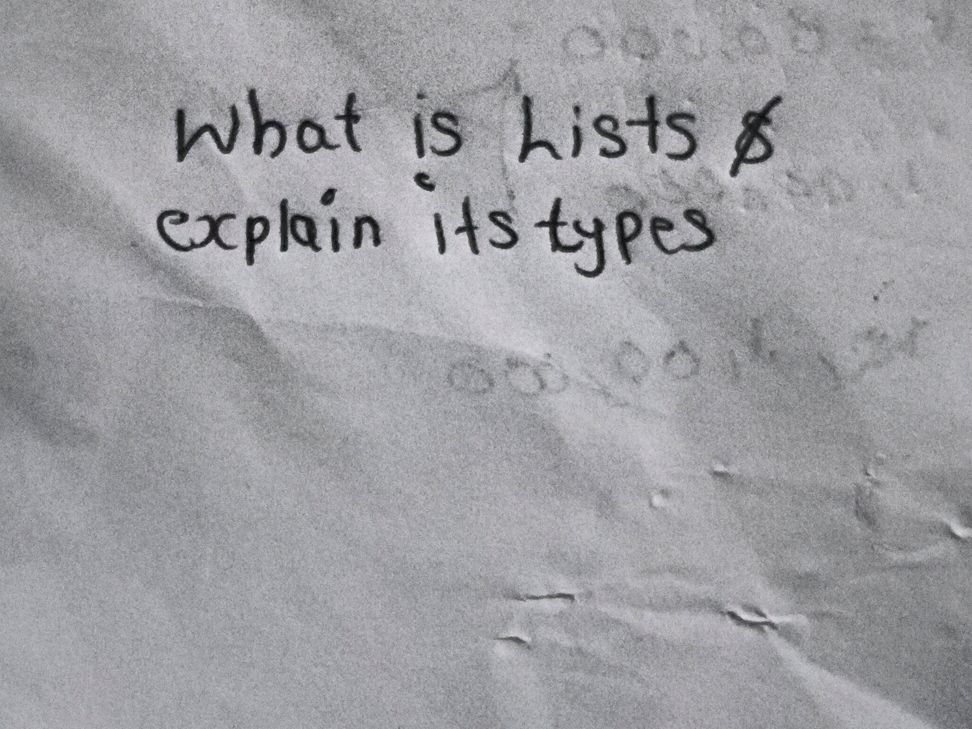 What is Lists $
explain its types